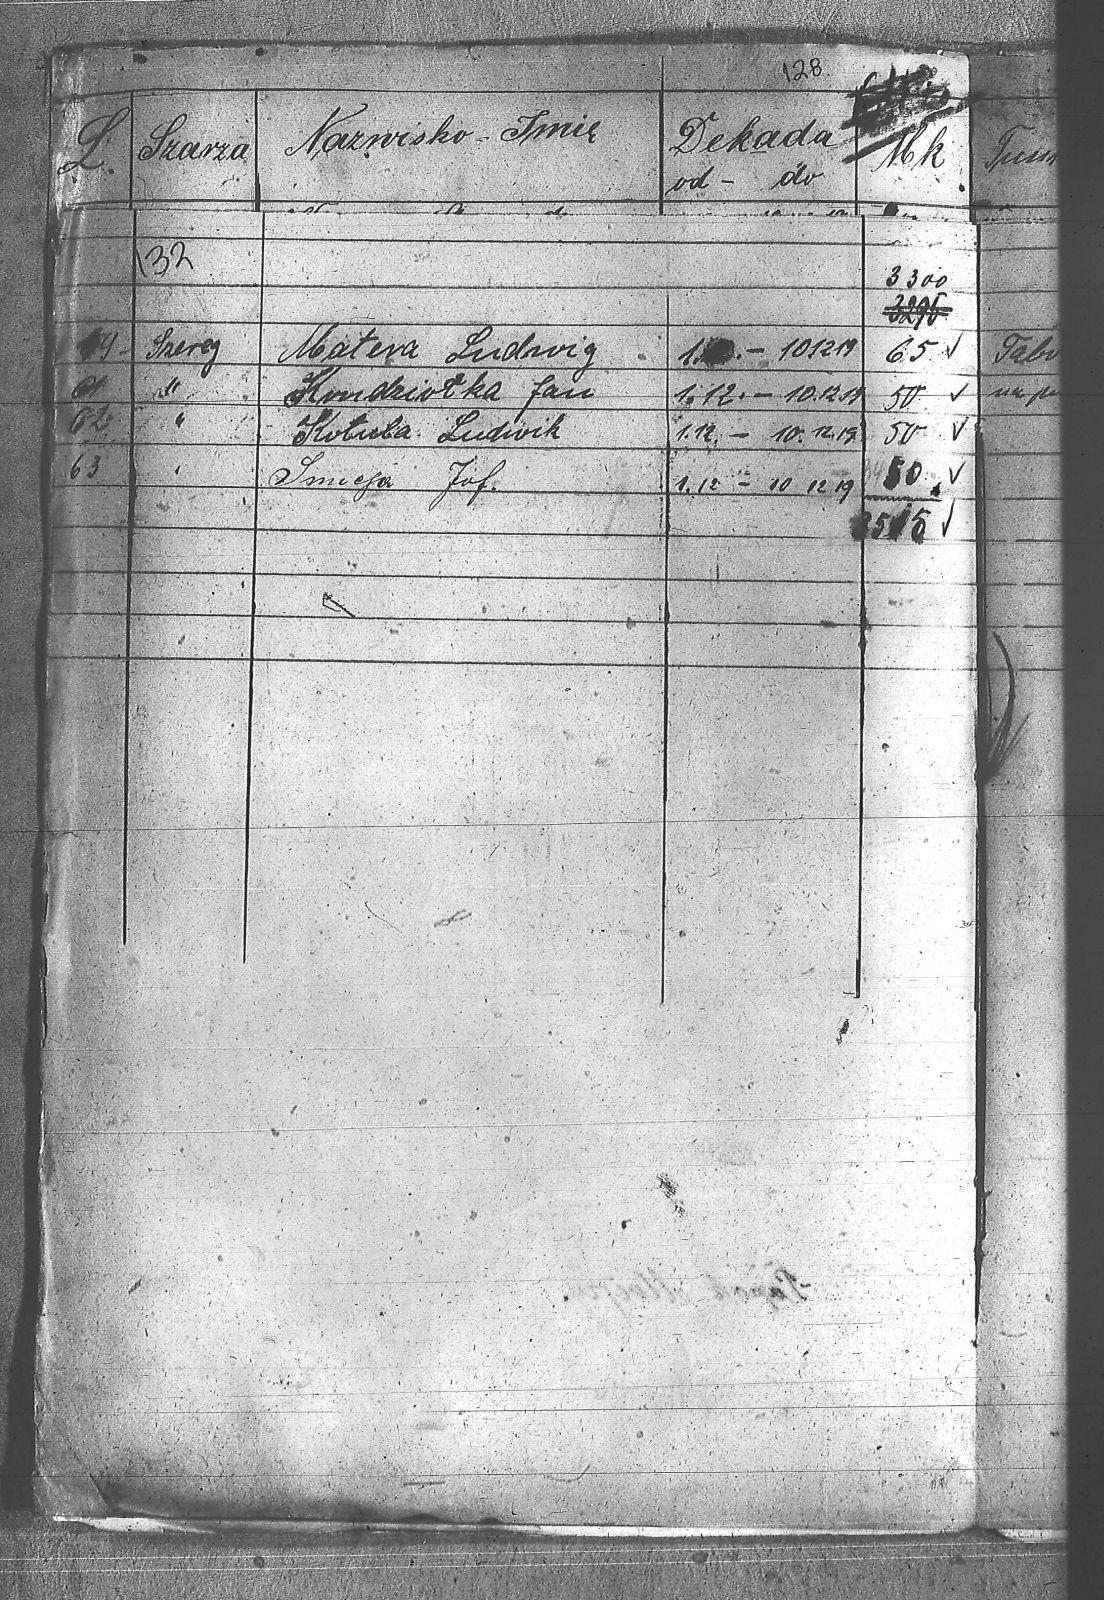 128
L. Szarza Nazwisko - Imię Dekada od - do Mk
132
3300
3295
Szereg Matera Ludwig 1. - 10 12 19 65 ✓
61 " Kondziołka Jan 1.12. - 10.12.19 50 ✓
62 " Kotula Ludwik 1.12. - 10.12.19 50 ✓
63 " Smieja Jof. 1.12 - 10 12 19 50 ✓
3515 ✓